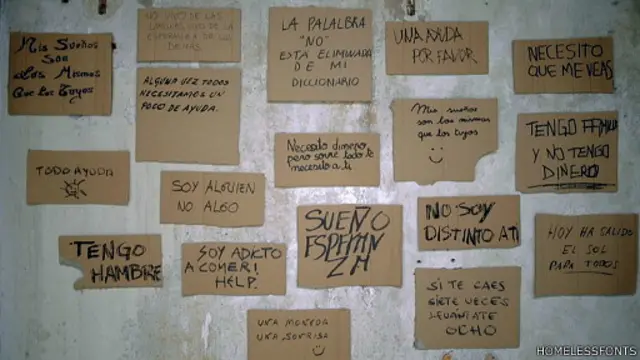 Mis Sueños
Son
Los Mismos
Que Los Tuyos
NO VIVO DE LAS
ESPERANZA DE LOS
DEMAS
LA PALALBRA
"NO"
ESTA ELIMINADA
DE MI
DICCIONARIO
UNA AYUDA
POR FAVOR
NECESITO
QUE ME VEAS
ALGUNA VEZ TODOS
NECESITAMOS UN
POCO DE AYUDA.
Mis sueños
son los mismos
que los tuyos
TENGO FAMILIA
Y NO TENGO
DINERO
Necesito dinero,
pero sobre todo te
necesito a ti
TODO AYUDA
SOY ALGUIEN
NO ALGO
SUEÑO
ESPERAN
ZA
NO SOY
DISTINTO A TI
HOY HA SALIDO
EL SOL
PARA TODOS
TENGO
HAMBRE
SOY ADICTO
A COMER!
HELP.
SI TE CAES
SIETE VECES
LEVANTATE
OCHO
UNA MONEDA
UNA SONRISA
HOMELESSFONTS